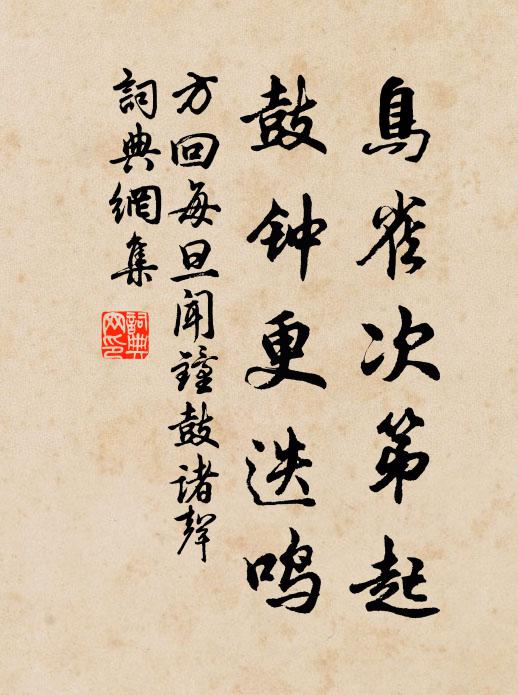 鳥雀次第起
鼓钟更迭鸣
方回每旦闻鐘鼓诸聲
詞典網集
詞典網印